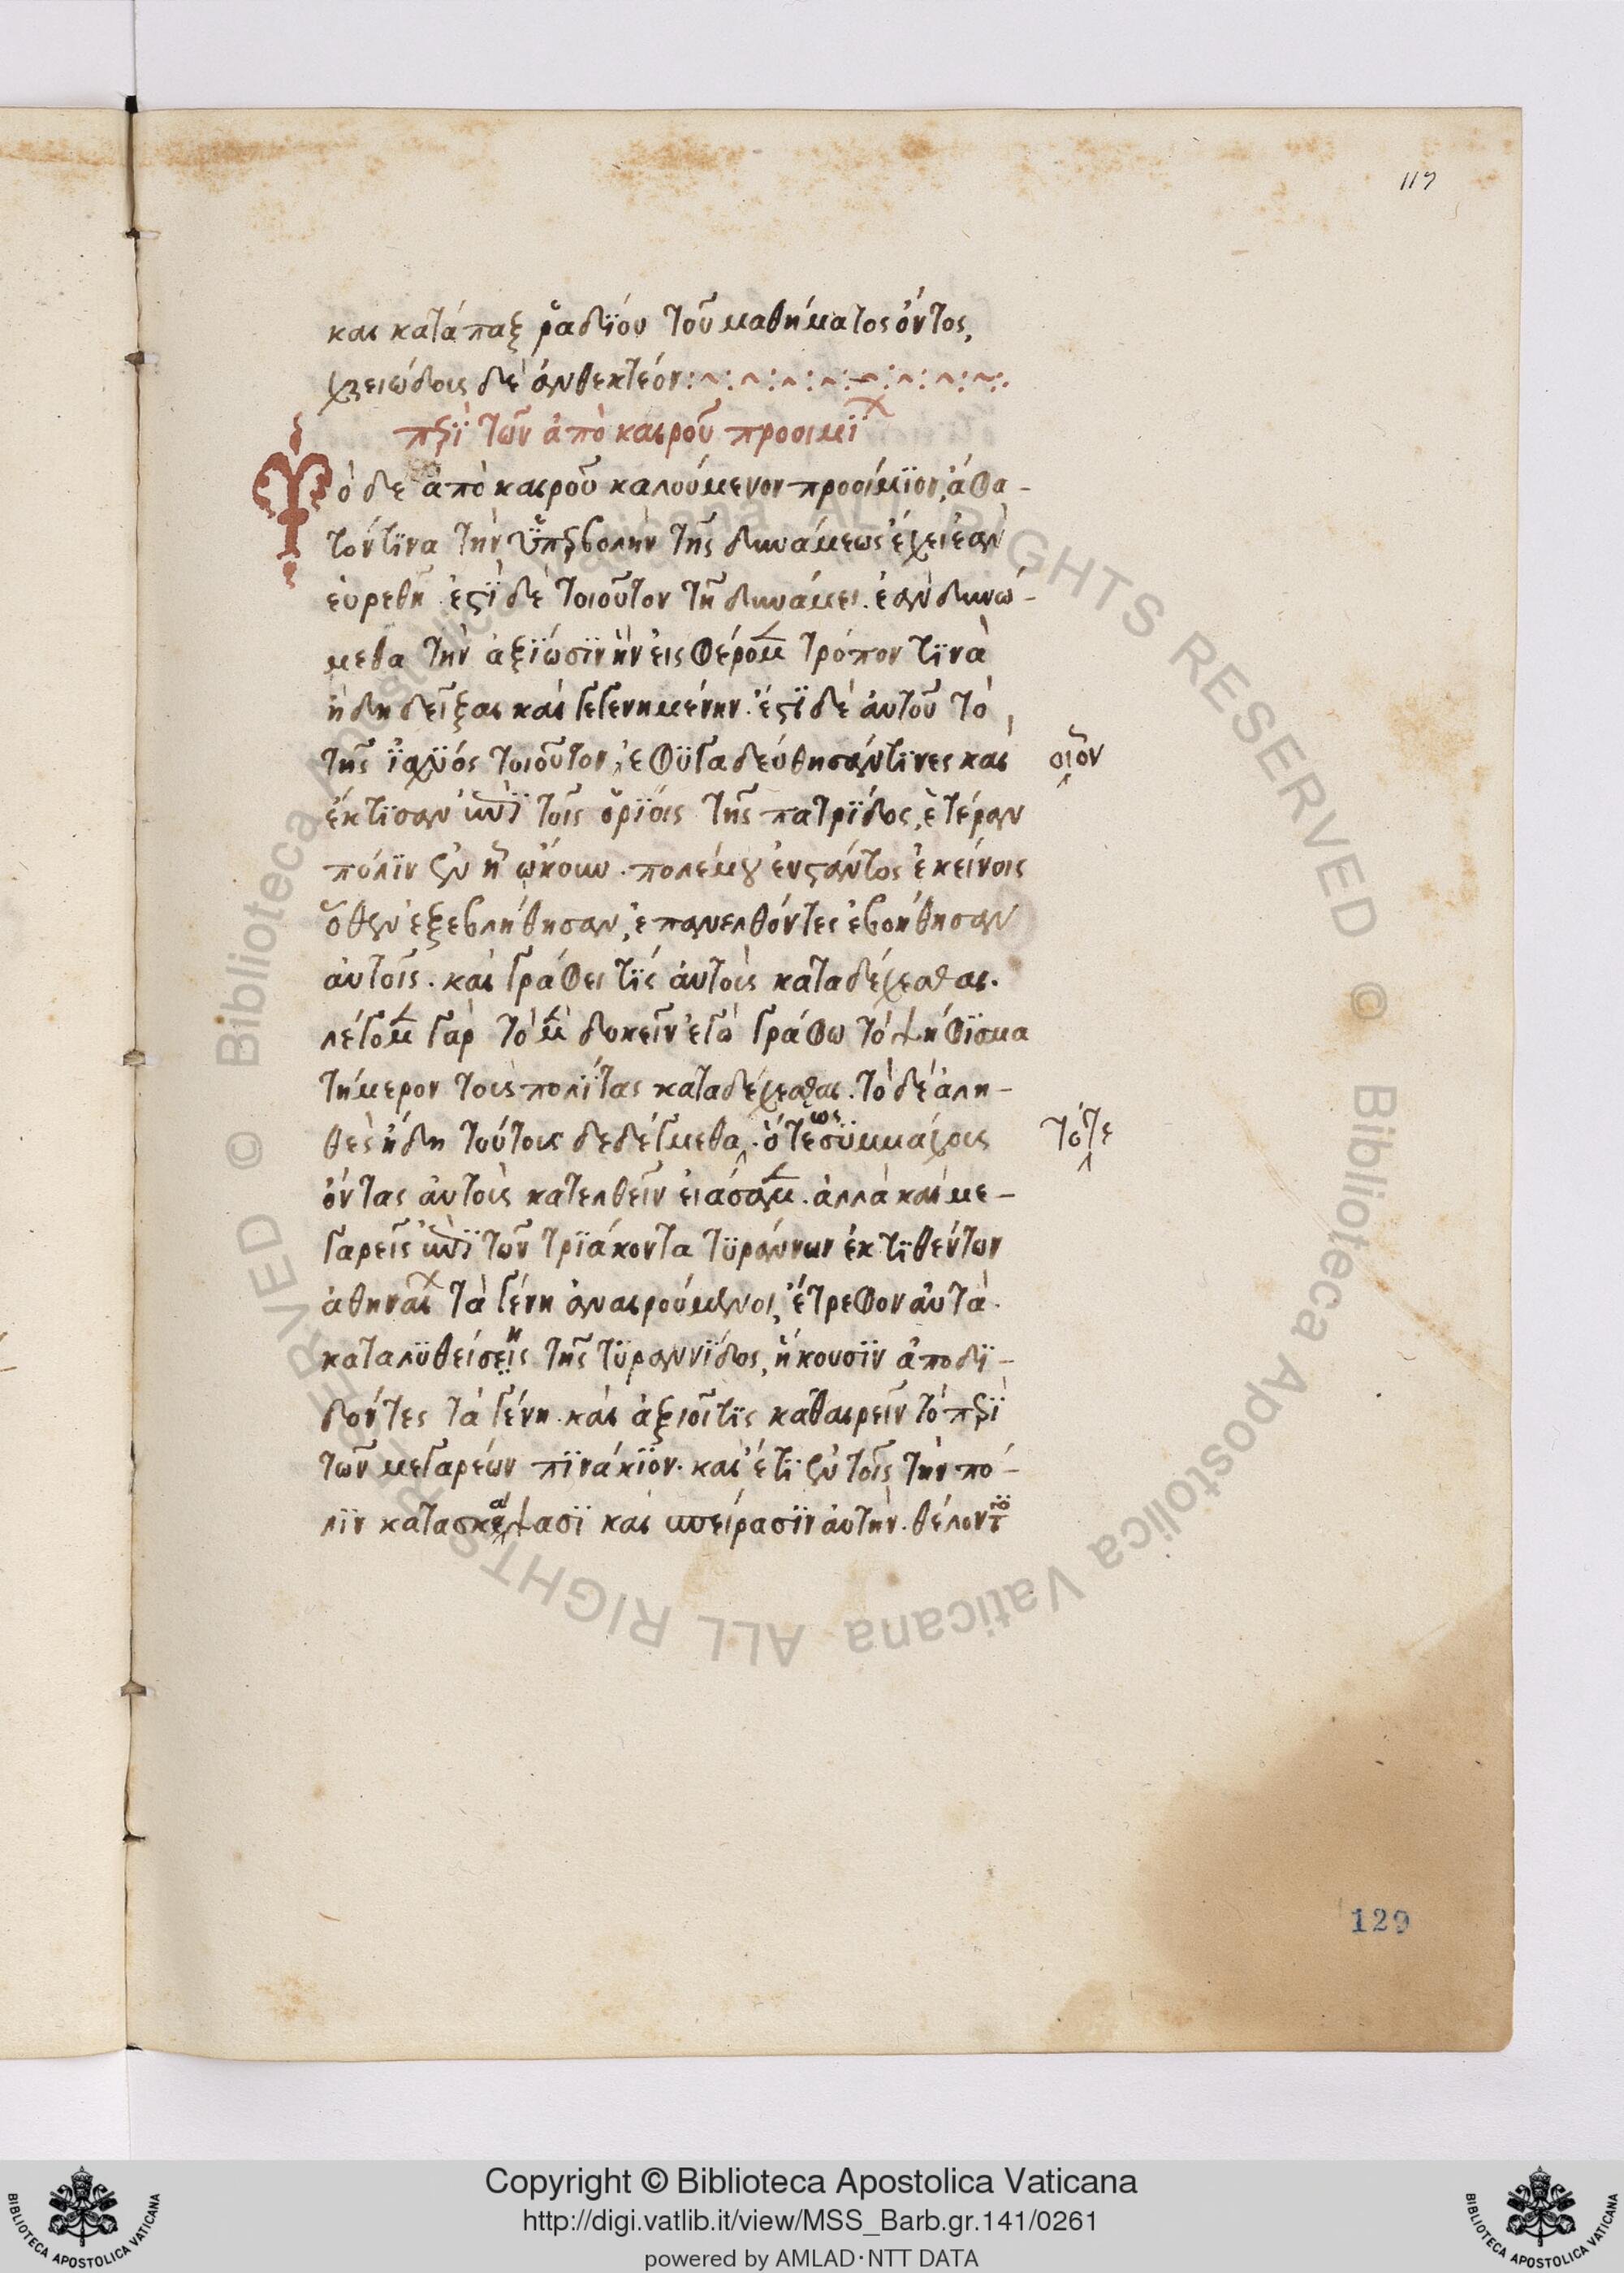 117
και κατάπαξ ῥαδΐου τοῦ μαθήματος ὄντος,
χρειώδους δὲ ἀνθεκτέον:~:~:~:~:~:~:~:~:.
πρΐ τῶν ἀπὸ καιροῦ προοιμΐ
Τὸ δε ἀπὸ καιροῦ καλούμενον προοίμϊον, ἄφα-
τόν τϊνα τὴν ὑπρβολὴν τῆς δυνάμεως ἔχει ἐὰν
ἑυρεθῆ. ἐστΐ δὲ τοιοῦτον τῆ δυνάμει. ἐὰν δυνώ-
μεθα τὴν ἀξϊώσϊν ἣν εισφέρομ τρόπον τϊνὰ
ἤδη δεῖξαι καὶ γεγενημένην. ἔστϊ δὲ ἀυτοῦ τὸ
τῆς ἰσχϋός τοιοῦτον, ἐφϋγαδεύθησάν τϊνες καὶ
οἷον
ἔκτϊσαν ἐπΐ τοῖς ὁρΐοις τῆς πατρΐδος, ἑτέραν
πόλϊν ἐν ἧ ὤκουν. πολέμου ἐνστάντος ἐκείνοις
ὅθεν ἐξεβλήθησαν, ἐπανελθόντες ἐβοήθησαν
ἀυτοῖς. καὶ γράφει τϊς ἀυτοὺς καταδέχεσθαι.
λέγομ γὰρ τὸ μ δοκεῖν ἐγὼ γράφω τὸ ψήφϊσμα
τήμερον τοὺς πολΐτας καταδέχεσθαι. τὸ δὲ ἀλη-
θὲς ἤδη τούτους δεδέγμεθα. ὅτε ὡς σϋμμάχους
τότε
ὄντας ἀυτοὺς κατελθεῖν ειάσαμ. ἀλλὰ καὶ με-
γαρεῖς ἐπΐ τῶν τρϊάκοντα τϋράννων ἐκτϊθέντων
ἀθηναι τὰ γένη ἀναιρούμενοι, ἔτρεφον ἀυτά.
καταλϋθείσεις η τῆς τϋραννΐδος, ἥκουσϊν ἀποδϊ-
δόντες τὰ γένη. καὶ ἀξιοῖ τϊς καθαιρεῖν τὸ πρΐ
τῶν μεγαρέων πϊνάκϊον. καὶ ἔτϊ ἐν τοῖς τὴν πό-
λϊν κατασκάψασϊ καὶ σπείρασϊν ἀυτὴν. θέλοντ
129
Copyright © Biblioteca Apostolica Vaticana
http://digi.vatlib.it/view/MSS_Barb.gr.141/0261
powered by AMLAD·NTT DATA